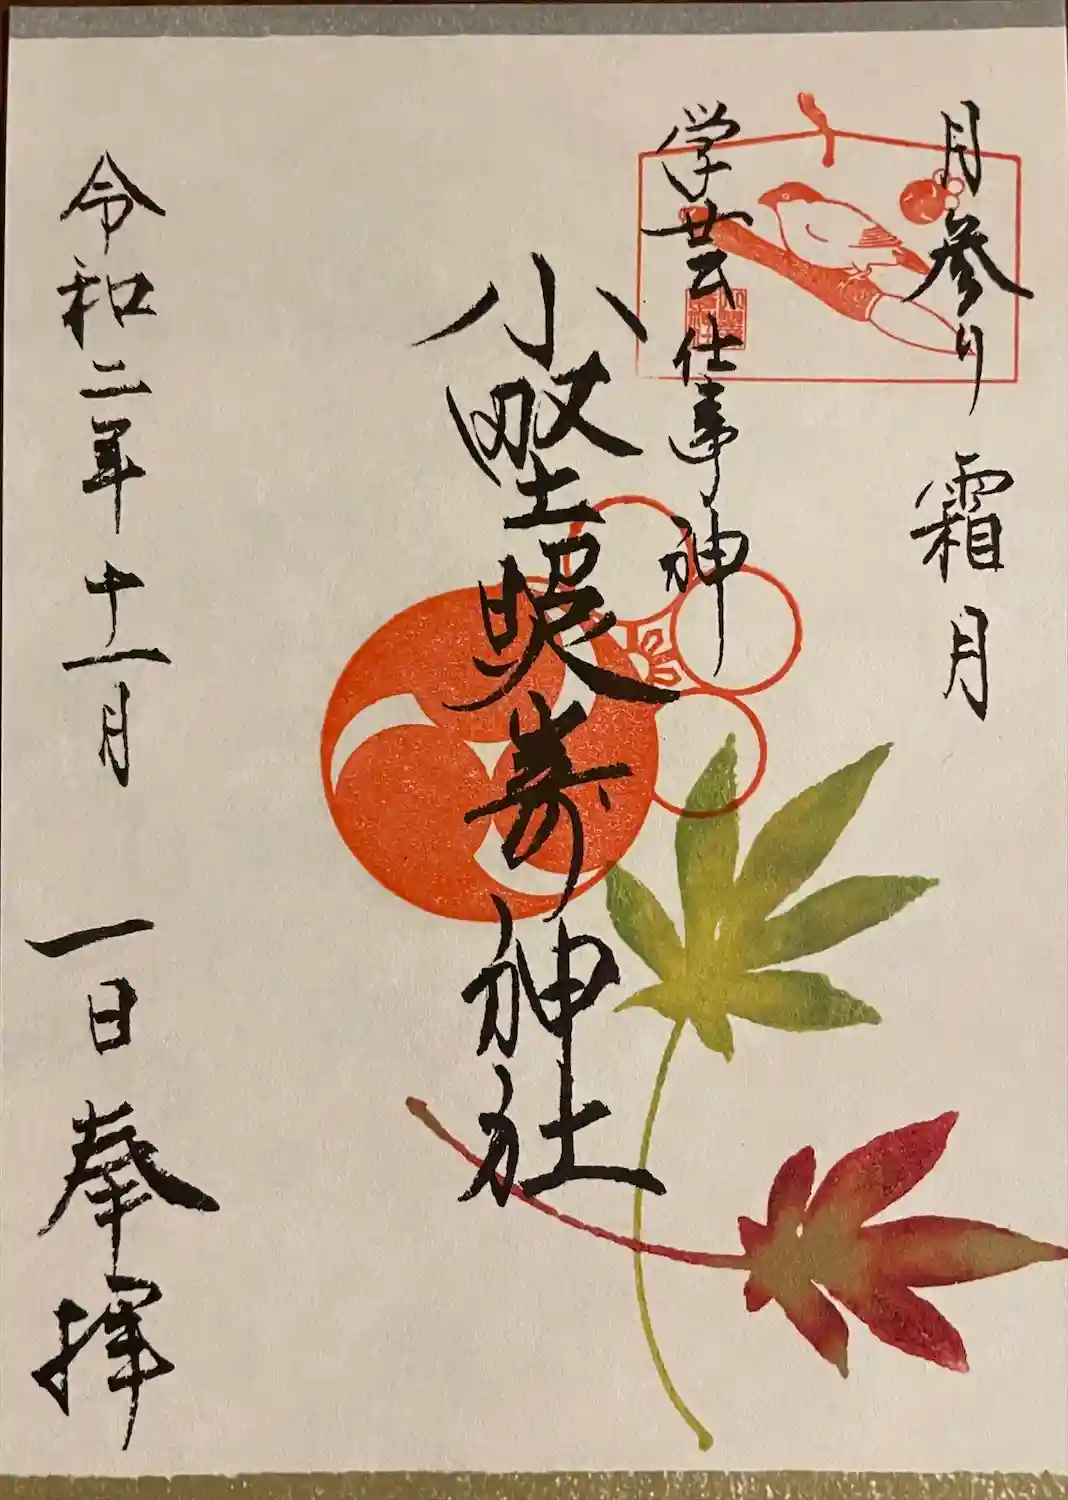 月参り 霜月
学芸仕事神
小野照崎神社
令和二年十一月 一日 奉拝